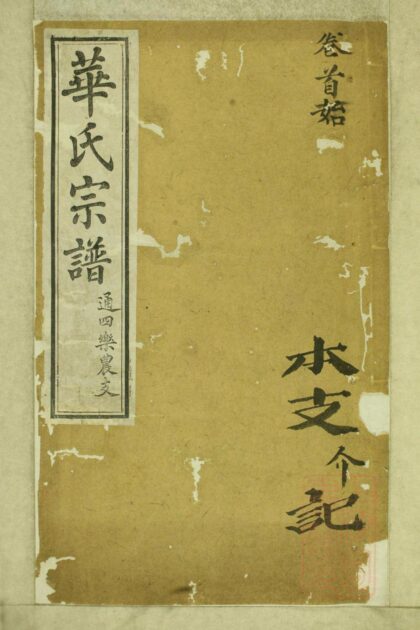 卷首始
本支
介
記
華氏宗譜
通四樂農支